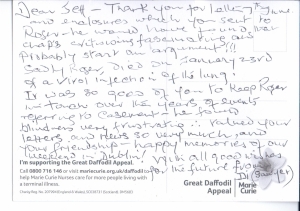 Dear Jeff - Thank you for letter 9th June
and enclosures which you sent to
Roger - he would have found your
fascinating and
Probably start an argument!!!
Sadly Roger died on January 23rd
of a viral infection of the lung.
It was so good of you to keep Roger
in touch over the years of events
referring to Casement - he found
blindness very frustrating & valued your
letters and news so very much, and
your friendship - happy memories of our
weekend in Dublin! With all good wishes
for the future from
I'm supporting the Great Daffodil
Appeal.
Call 0800 716 146 or visit mariecurie.org.uk/daffodil to
help Marie Curie Nurses care for more people living with
a terminal illness.
Great Daffodil
Appeal
Marie
Curie